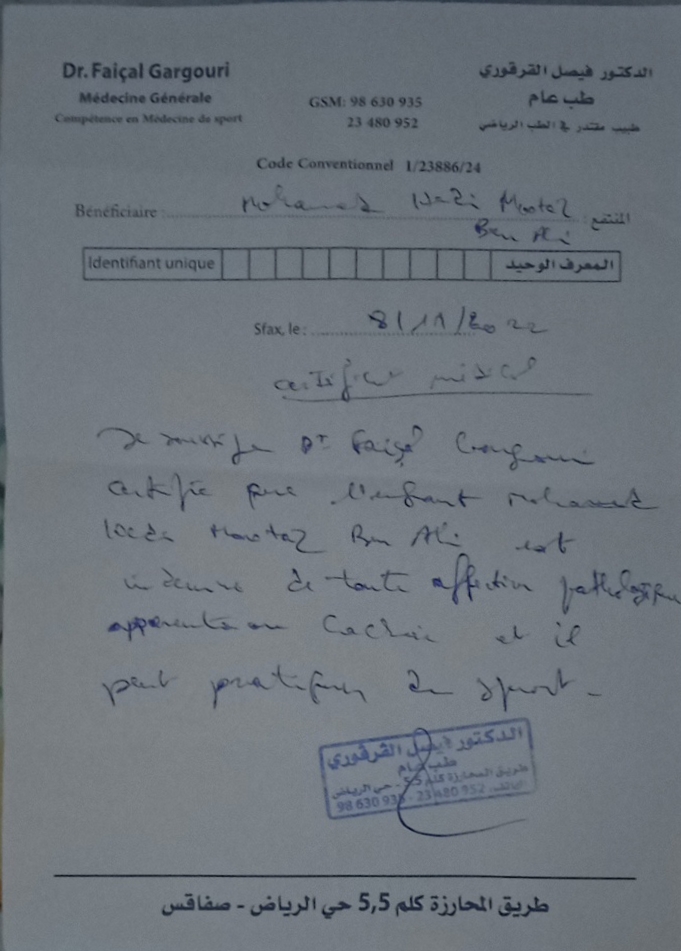 Dr. Faiçal Gargouri
الدكتور فيصل القرقوري
Médecine Générale
طب عام
Compétence en Médecine de sport
طبيب مقتدر في الطب الرياضي
GSM: 98 630 935
23 480 952
Code Conventionnel 1/23886/24
Bénéficiaire : Mohamed Moataz المنتفع :
Ben Ali
Identifiant unique المعرف الوحيد
Sfax, le : 8/11/2022
certificat médical
Je soussigné Dr Faiçal Gargouri
certifie que l'enfant Mohamed
Moataz Ben Ali est
indemne de toute affection pathologique
apparente ou cachée et il
peut pratiquer du sport.
الدكتور فيصل القرقوري
طب عام
طريق المحارزة كلم 5,5 - حي الرياض
الهاتف: 98 630 935 - 23 480 952
طريق المحارزة كلم 5,5 حي الرياض - صفاقس